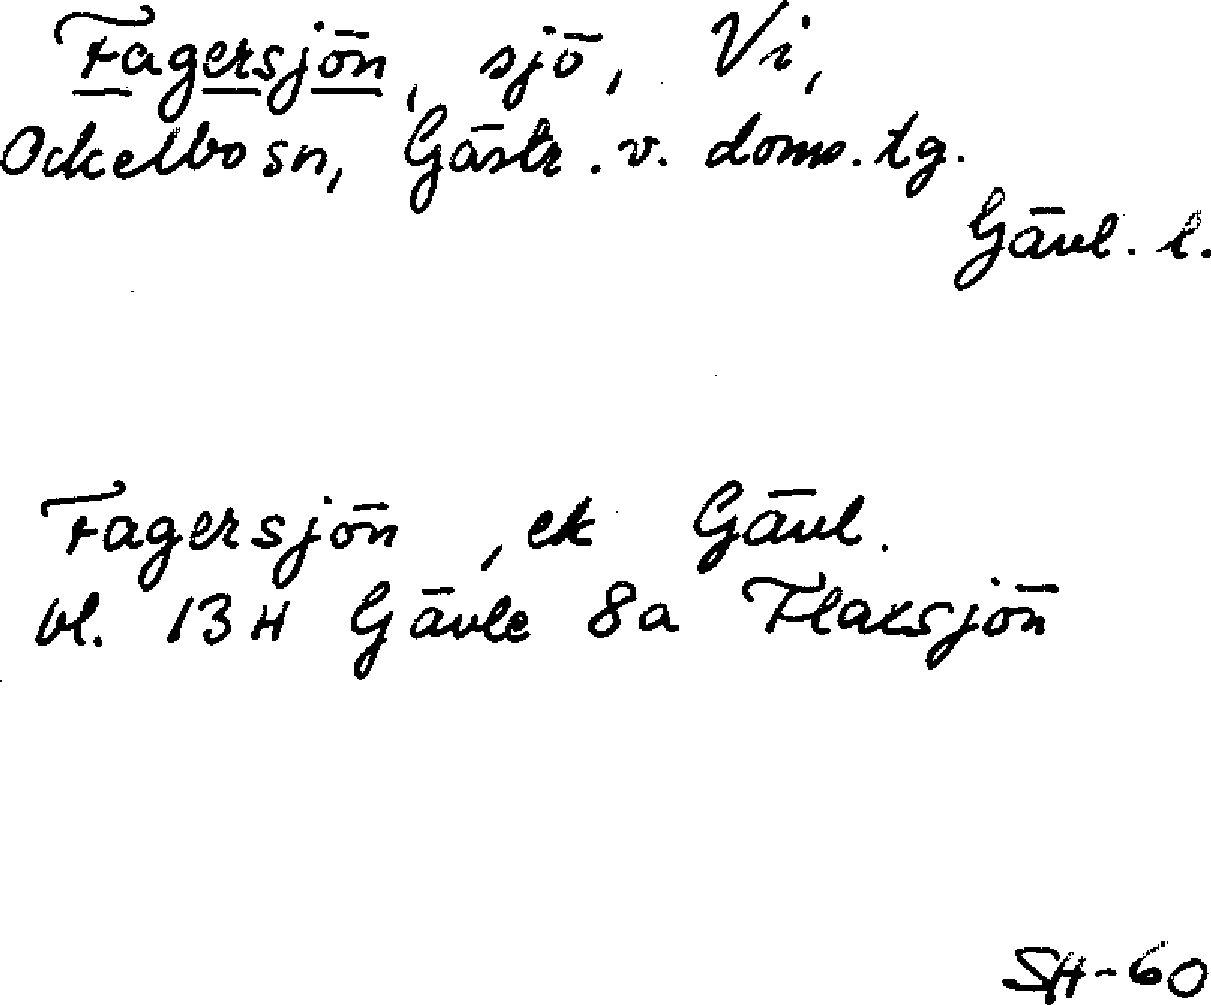 Fagersjön, sjö, Vi,
Ockelbo sn, Gästr. v. doms. tg.
Gävl. l.
Fagersjön, ek Gävl.
bl. 13H Gävle 8a Flaksjön
SH-60